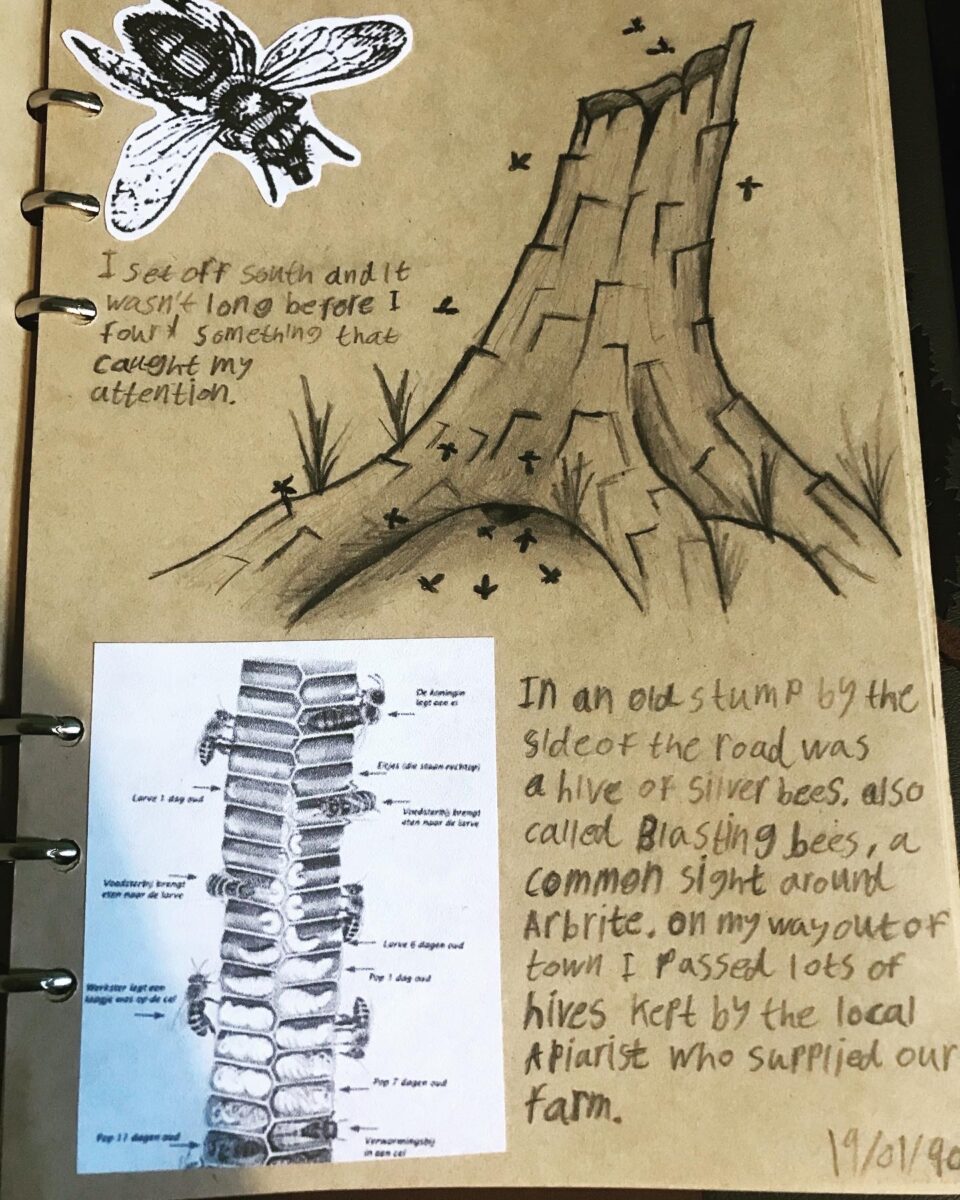 I set off south and It
wasn't long before I
found something that
caught my
attention.
De koningin
legt een ei
Eitjes (die staan rechtop)
Larve 1 dag oud
Voedsterbij brengt
eten naar de larve
Voedsterbij brengt
eten naar de larve
Larve 6 dagen oud
Pop 1 dag oud
Werkster legt een
laagje was op de cel
Pop 7 dagen oud
Pop 11 dagen oud
Verwarmingsbij
in een cel
In an old stump by the
side of the road was
a hive of silver bees, also
called Blasting bees, a
common sight around
Arbrite. on my way out of
town I passed lots of
hives kept by the local
Apiarist who supplied our
farm.
19/01/90